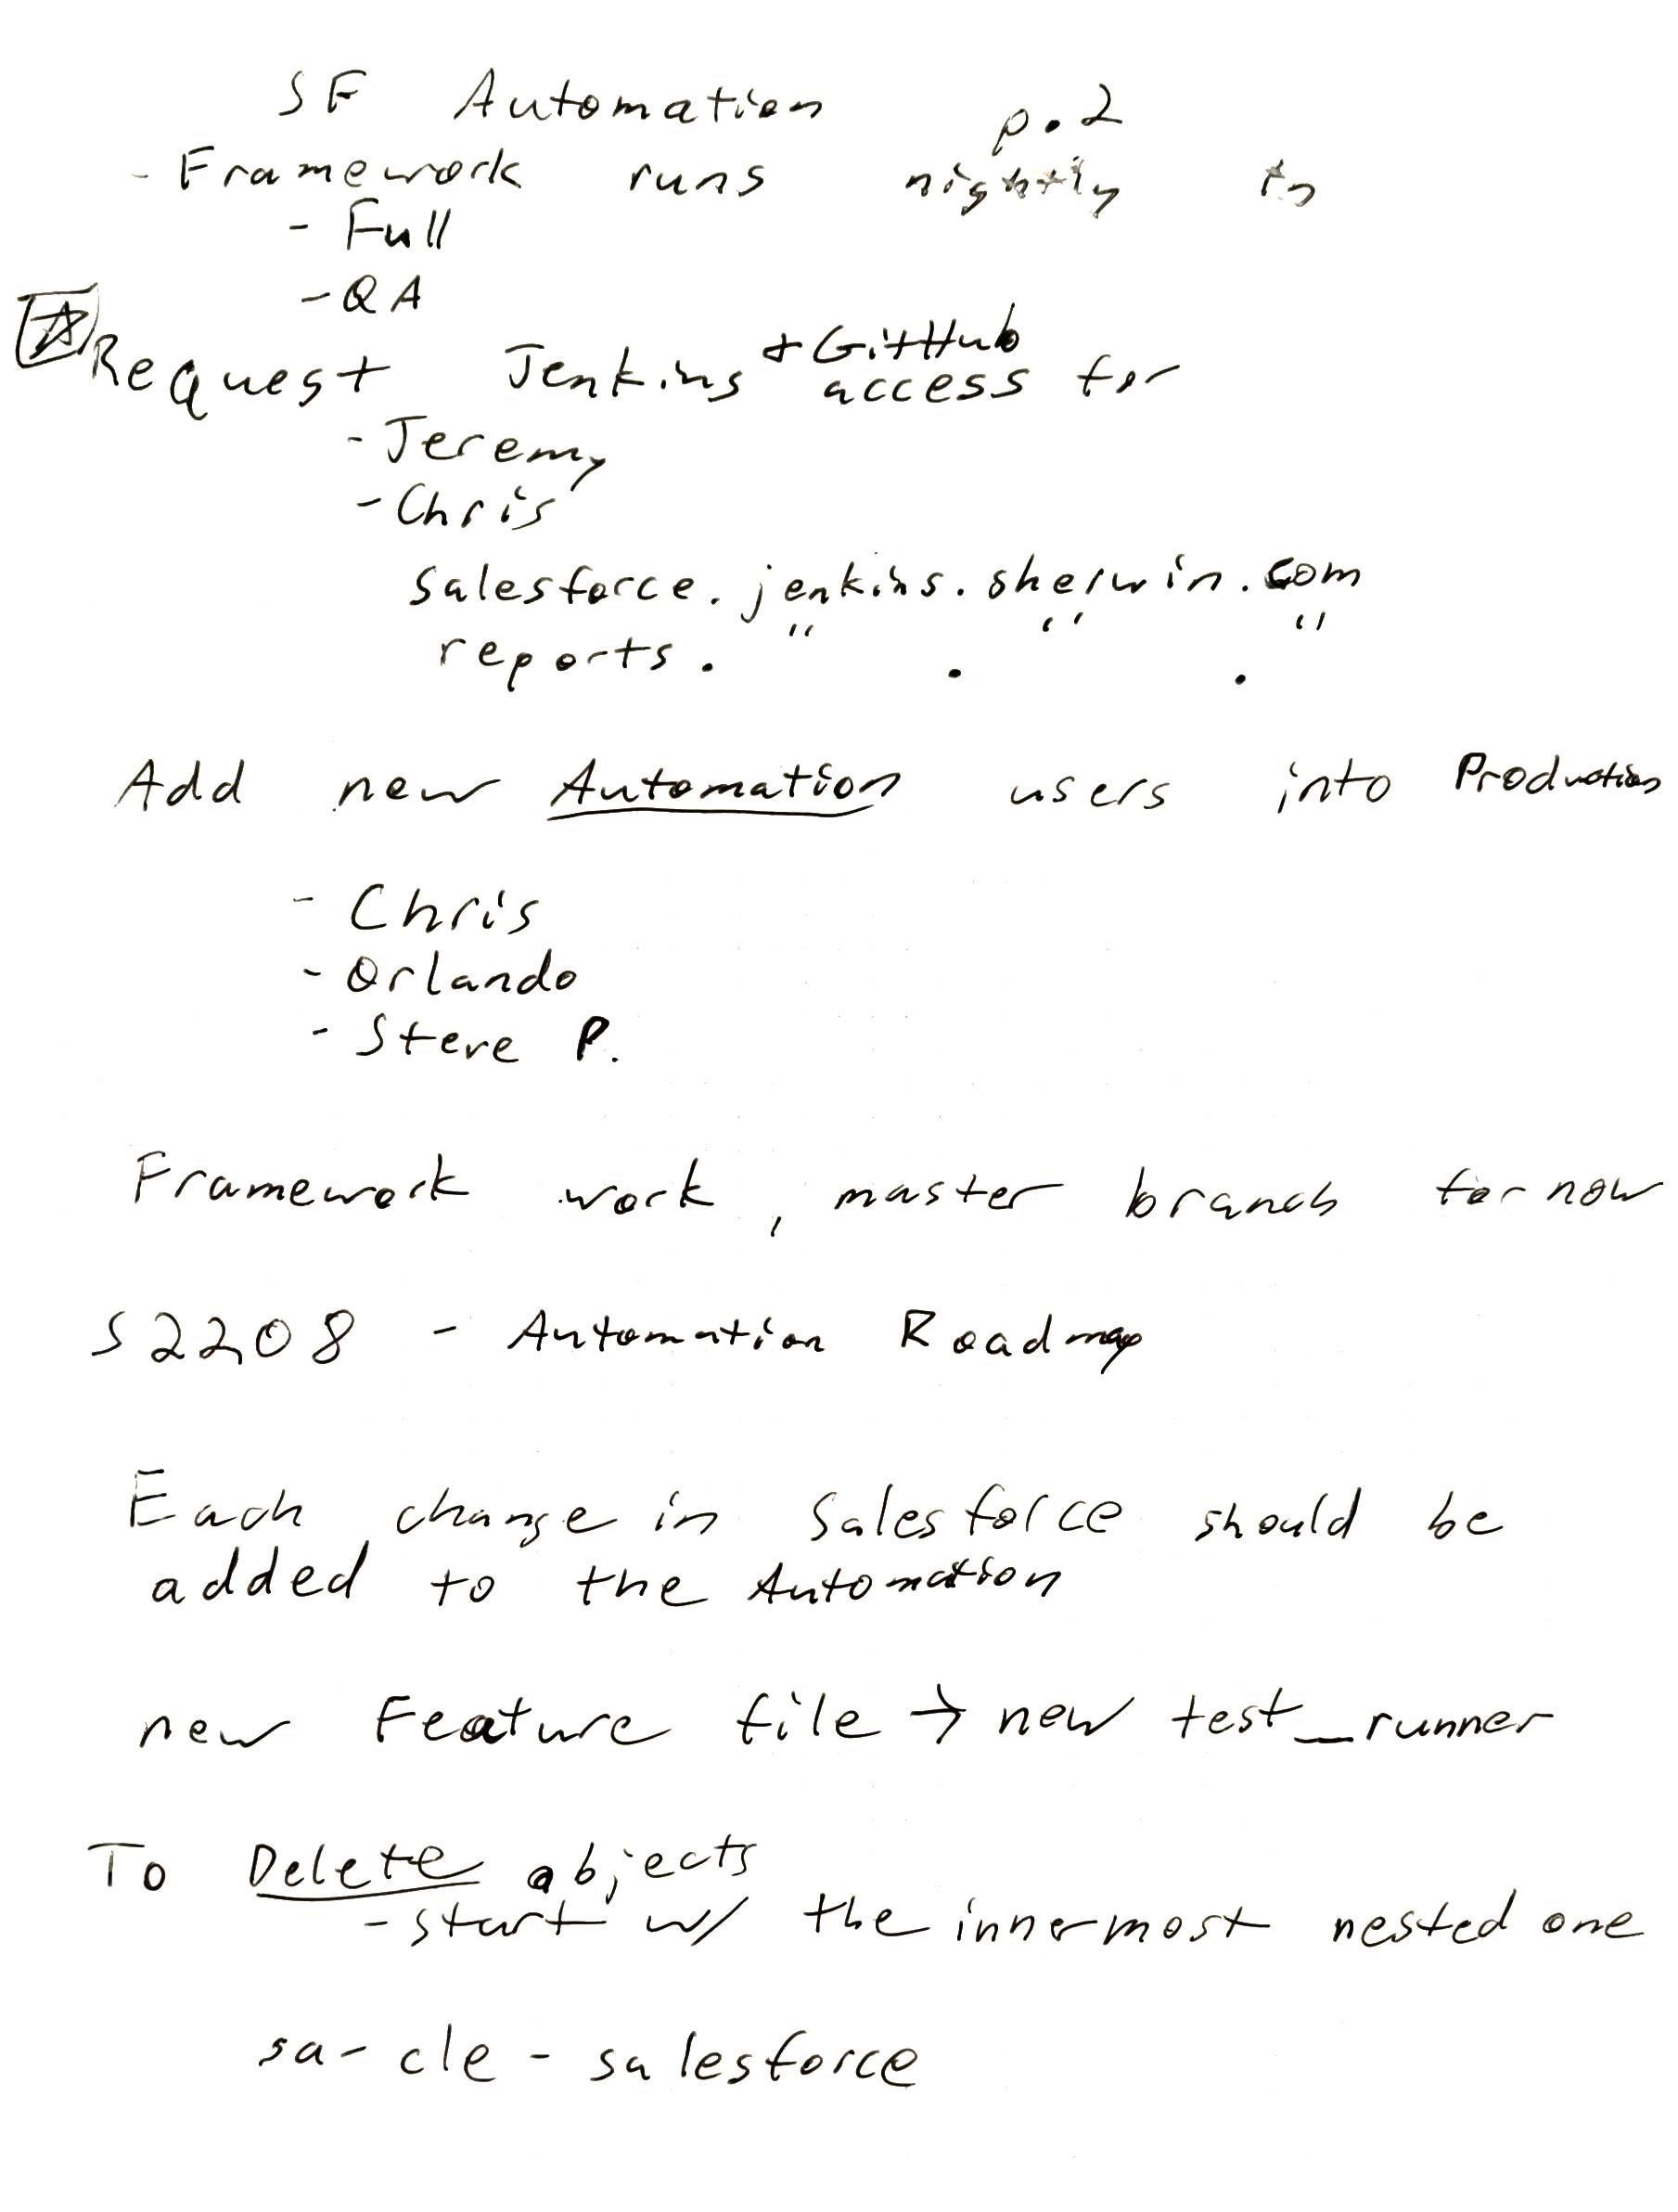 SF Automation p.2
- Framework runs nightly in
- Full
- QA
☆ Request Jenkins + GitHub access for
- Jeremy
- Chris
salesforce.jenkins.sherwin.com
reports. " . " . "
Add new Automation users into Production
- Chris
- Orlando
- Steve P.
Framework work, master branch for now
S2208 - Automation Roadmap
Each change in Salesforce should be
added to the Automation
new Feature file → new test_runner
To Delete objects
- start w/ the innermost nested one
sa-cle-salesforce